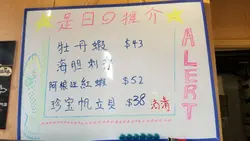 是日推介
牡丹蝦 $43
海胆刺身
阿根廷紅蝦 $52
珍宝帆立貝 $38 沽清
ALERT